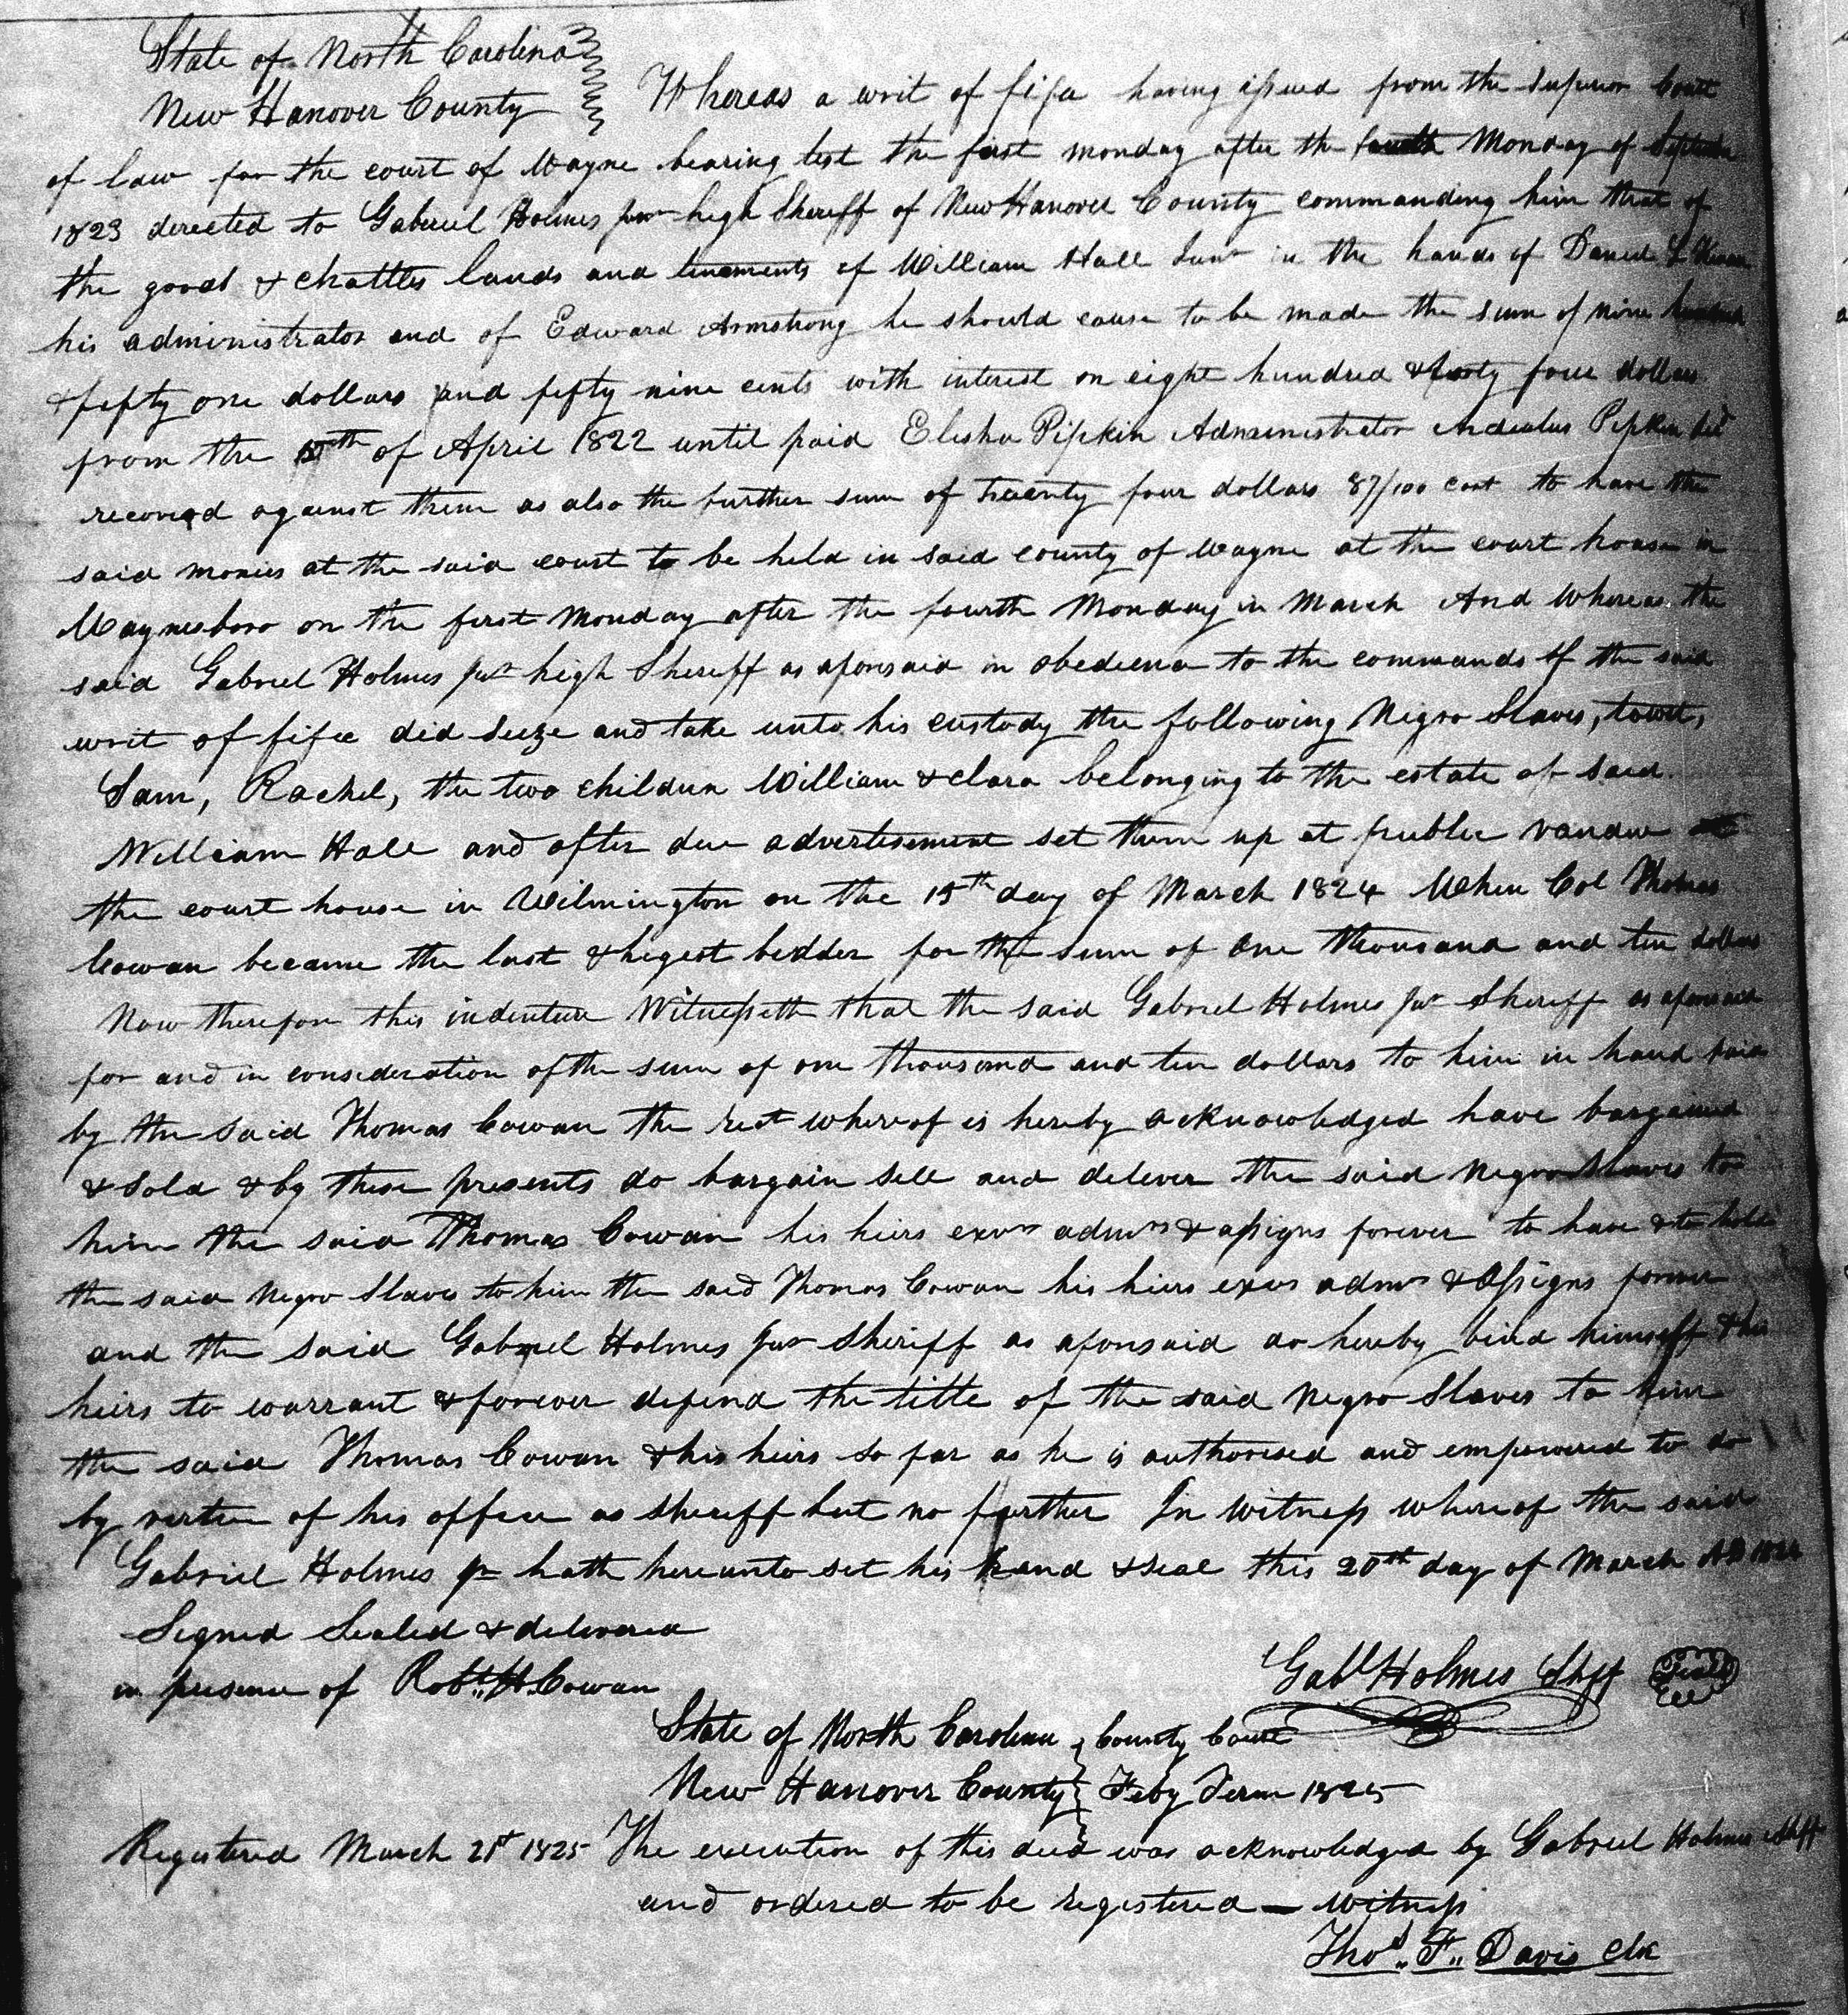 State of North Carolina
New Hanover County Whereas a writ of fifa having issued from the superior Court
of law for the court of Wayne bearing test the first monday after the fourth Monday of
1823 directed to Gabriel Holmes junr high Sheriff of New Hanover County commanding him that of
the good & chattles lands and tenements of William Hall Junr in the hands of Daniel L
his administrator and of Edward Armstrong he should cause to be made the sum of nine hundred
& fifty one dollars and fifty nine cents with interest on eight hundred & forty four dollars
from the th of April 1822 until paid Elisha Pipkin Administrator Pipkin decd
recoverd against them as also the further sum of twenty four dollars 87/100 cost to have the
said monies at the said court to be held in said county of Wayne at the court house in
Waynesboro on the first Monday after the fourth Monday in March And Whereas the
said Gabriel Holmes junr high Sheriff as aforesaid in obedience to the commands of the said
writ of fifa did seize and take unto his custody the following Negro Slaves, towit,
Sam, Rachel, the two children William & clara belonging to the estate of said
William Hall and after due advertisement set them up at public vandue at
the court house in Wilmington on the 15th day of March 1824 When Col Thomas
Cowan became the last & higest bidder for the sum of One thousand and ten dollars
Now therefore this indenture Witnesseth that the said Gabriel Holmes jur Sheriff as aforesaid
for and in consideration of the sum of one thousand and ten dollars to him in hand paid
by the said Thomas Cowan the rect whereof is hereby acknowledged have bargained
& Sold & by these presents do bargain sell and deliver the said Negro Slaves to
him the said Thomas Cowan his heirs exrs admrs & assigns forever to have & to hold
the said Negro Slaves to him the said Thomas Cowan his heirs exrs admrs & Assigns forever
and the said Gabriel Holmes jur Sheriff as aforesaid do hereby bind himself & his
heirs to warrant & forever defend the title of the said Negro Slaves to him
the said Thomas Cowan & his heirs so far as he is authorised and empowered to do
by virtue of his office as sheriff but no further In witness whereof the said
Gabriel Holmes jr hath hereunto set his hand & seal this 20th day of March AD 1824
Signed Sealed & delivered
in presence of Robt. H. Cowan
Gabl Holmes Shff Seal
State of North Carolina County Court
New Hanover County Feby Term 1825
Registered March 21st 1825 The execution of this deed was acknowledged by Gabriel Holmes Shff
and ordered to be registered — Witness
Thos. F. Davis Clk